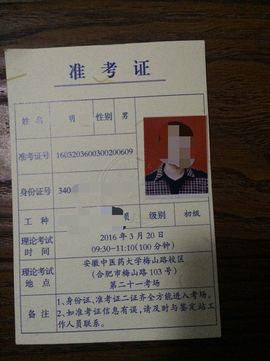 准考证
姓名 明 性别 男
准考证号 1603203600300200609
身份证号 340
工种 级别 初级
理论考试时间 2016年3月20日 09:30-11:10(100分钟)
理论考试地点 安徽中医药大学梅山路校区
(合肥市梅山路103号)
第二十一考场
备注 1、身份证、准考证二证齐全方能进入考场。
2、如准考证信息有误,请及时与鉴定站工
作人员联系。